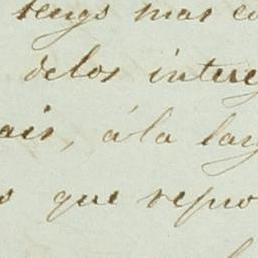 tengo mas co
delos interes
ais, ála larg
s que repro